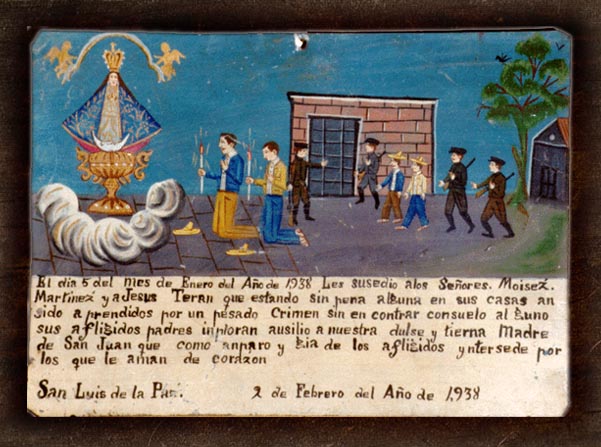 El dia 5 del mes de Enero del Año de 1938 Les susedio alos Señores. Moisez.
Martinez y aJesus Teran que estando sin pena alguna en sus casas an
sido a prendidos por un pesado Crimen sin en contrar consuelo al guno
sus afligidos padres inploran ausilio a nuestra dulse y tierna Madre
de San Juan que como anparo y gia de los afligidos yntersede por
los que le aman de corazon
San Luis de la Paz. 2 de Febrero del Año de 1,938